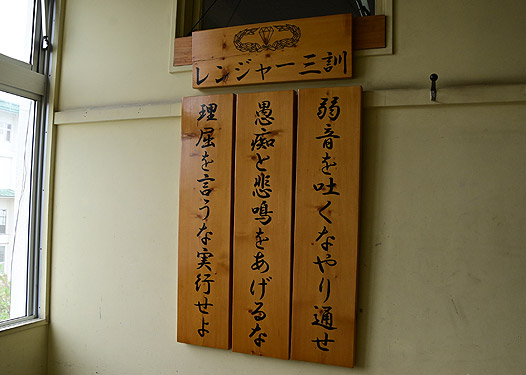 レンジャー三訓
弱音を吐くなやり通せ
愚痴と悲鳴をあげるな
理屈を言うな実行せよ